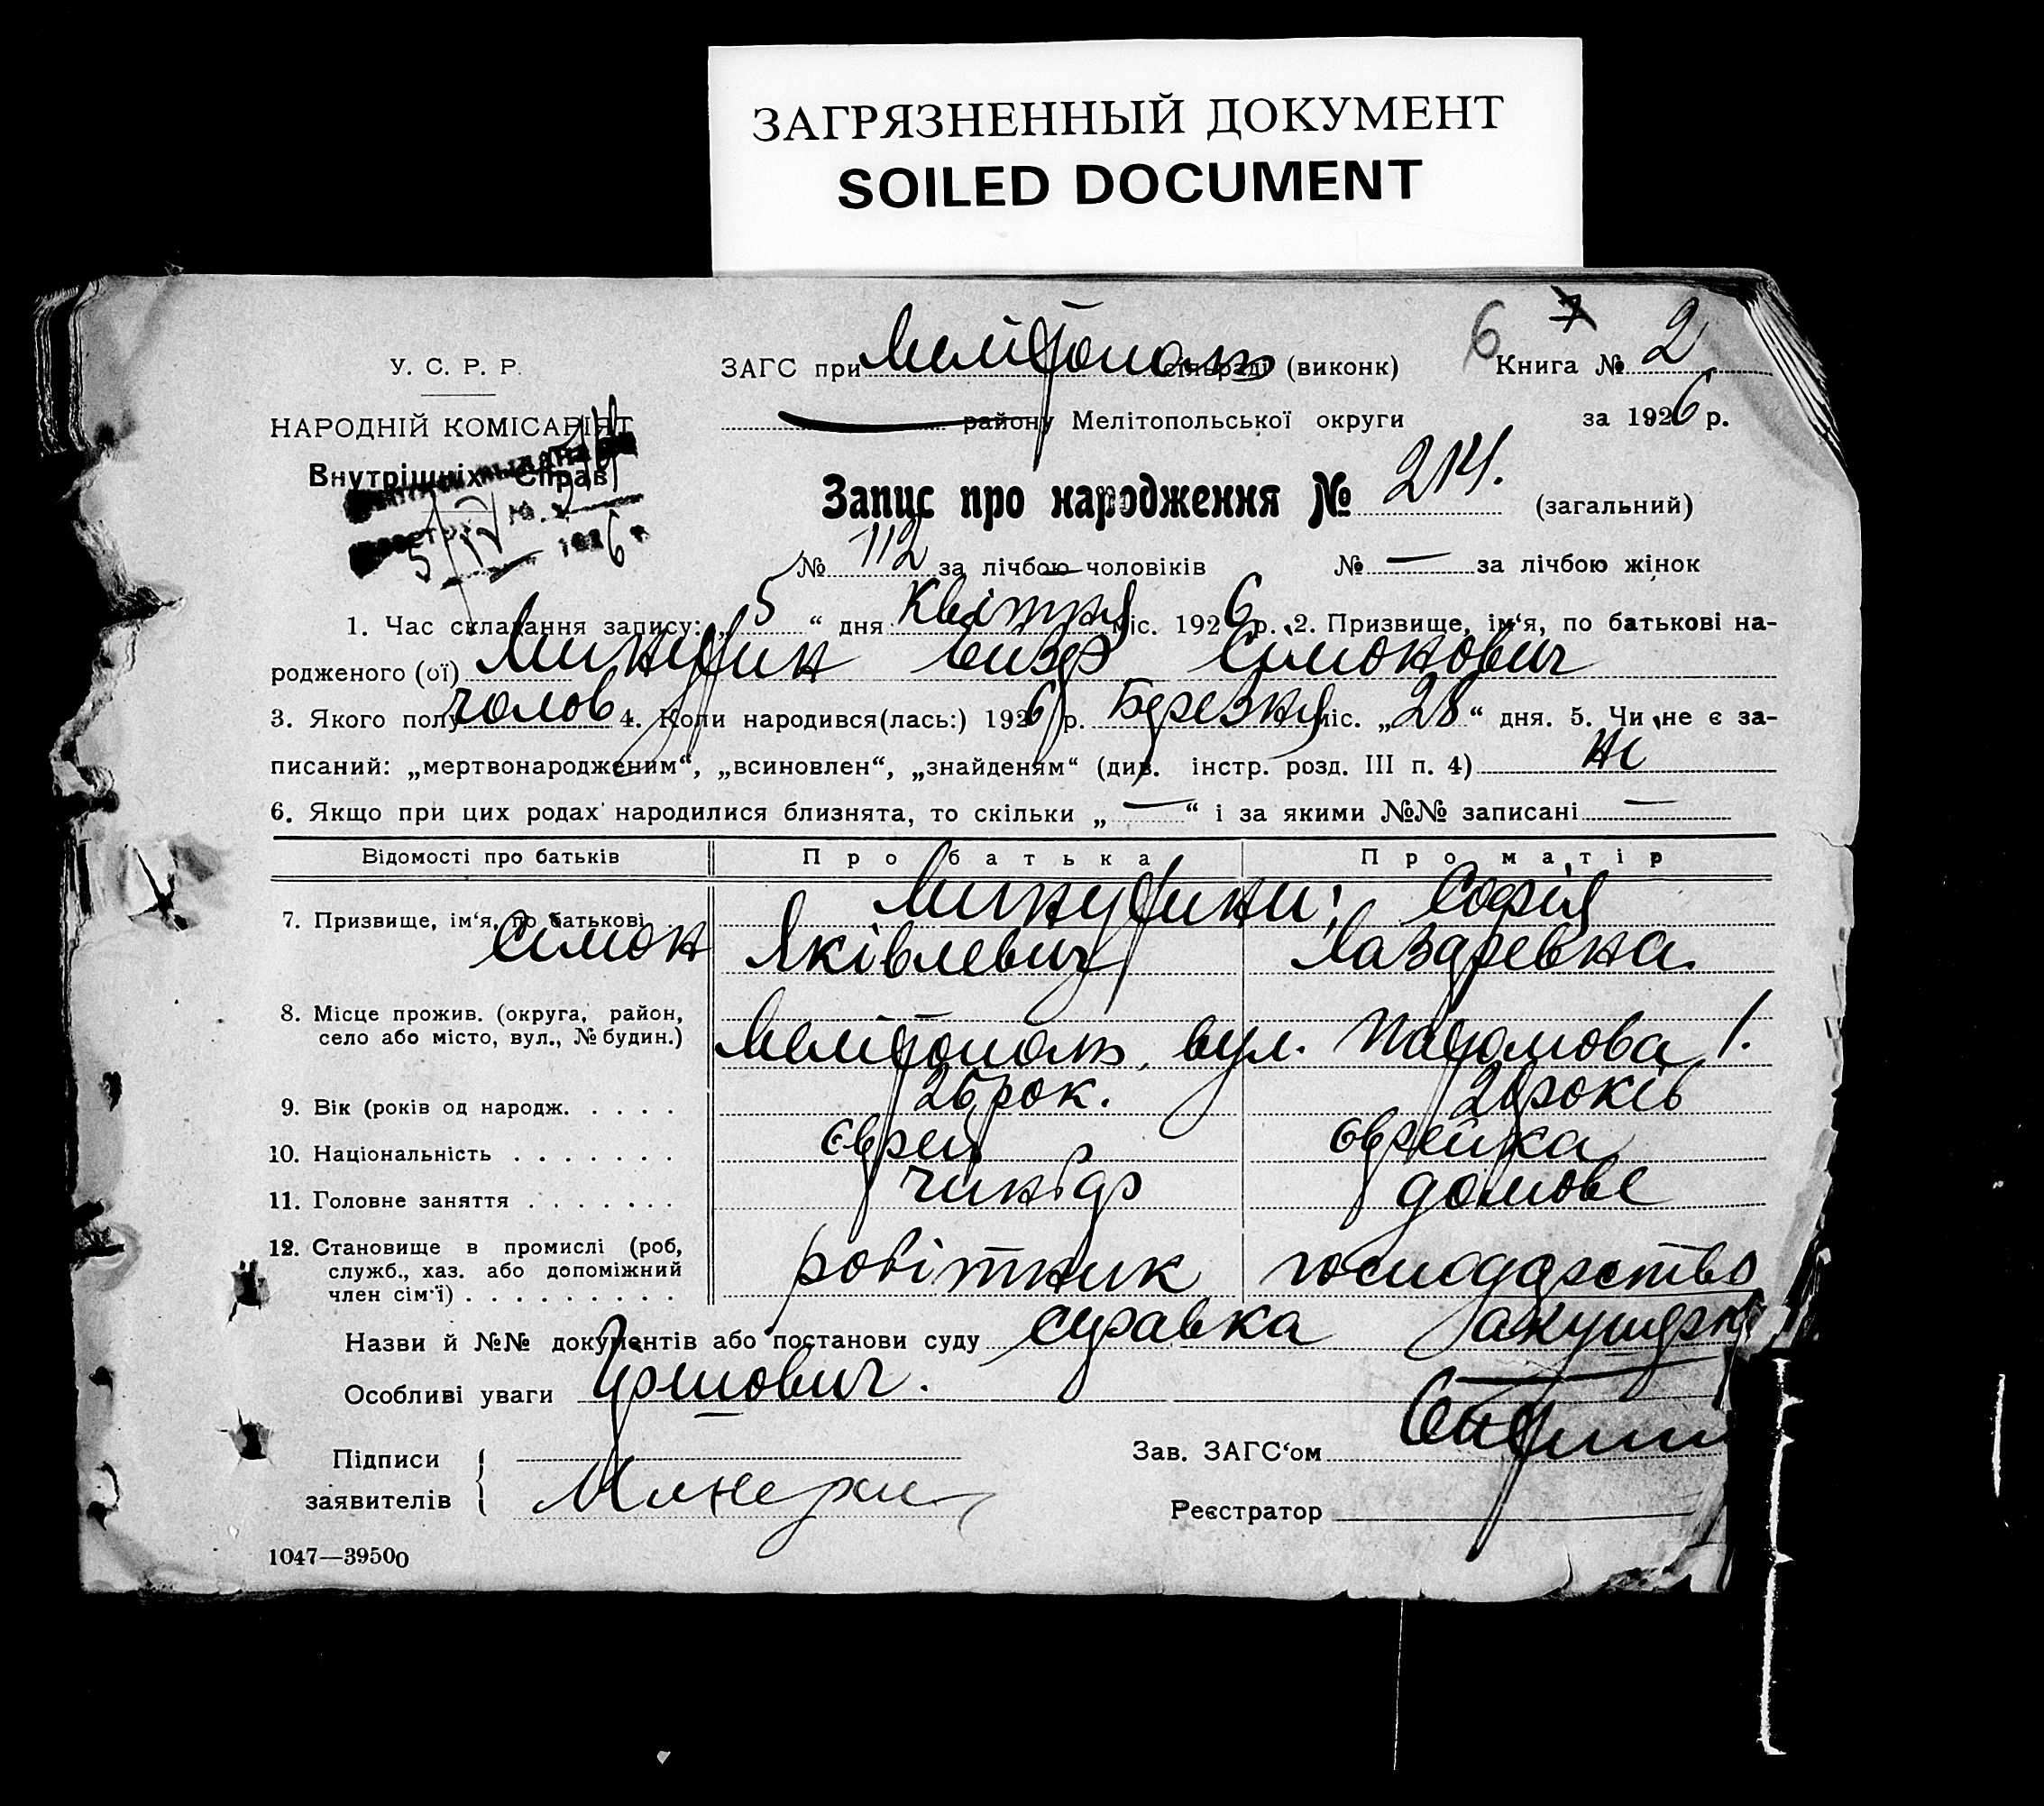 ЗАГРЯЗНЕННЫЙ ДОКУМЕНТ
SOILED DOCUMENT
6 7
У. С. Р. Р.
ЗАГС при Мелітополь сільраді (виконк) Книга № 2
НАРОДНІЙ КОМІСАРІЯТ
району Мелітопольської округи за 1926 р.
Внутрішніх Справ
Запис про народження № 214. (загальний)
5/IV 1926 р.
№ 112 за лічбою чоловіків № — за лічбою жінок
1. Час складання запису: „ 5 “ дня Квітня міс. 1926 р. 2. Призвище, ім‘я, по батькові на-
родженого (ої) Симонович
3. Якого полу чолов 4. Коли народився(лась:) 1926 р. Березня міс. „ 28 “ дня. 5. Чи не є за-
писаний: „мертвонародженим“, „всиновлен“, „знайденям“ (див. інстр. розд. III п. 4) не
6. Якщо при цих родах народилися близнята, то скільки „ — “ і за якими №№ записані —
Відомості про батьків Про батька Про матір
7. Призвище, ім‘я, по батькові Софія
Симон Яківлевич Лазаревна.
8. Місце прожив. (округа, район,
село або місто, вул., № будин.) Мелітополь, вул. 1.
9. Вік (років од народж. . . . . 26 рок. 26 років
10. Національність . . . . . . . єврей єврейка
11. Головне заняття . . . . . . . домове
12. Становище в промислі (роб,
служб., хаз. або допоміжний
член сім‘ї) . . . . . . . . . робітник господарство
Назви й №№ документів або постанови суду справка акушерки
Особливі уваги
Підписи
заявителів
Зав. ЗАГС‘ом
Реєстратор
1047—39500